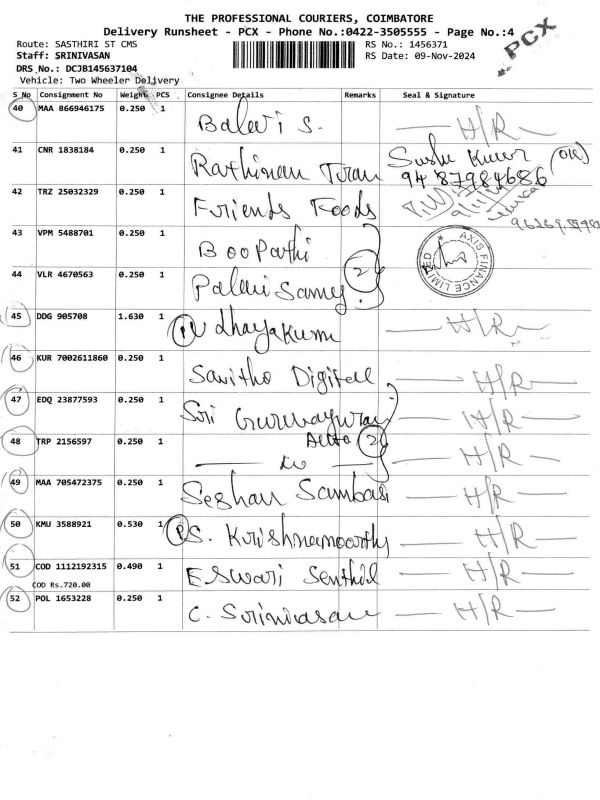 THE PROFESSIONAL COURIERS, COIMBATORE
Delivery Runsheet - PCX - Phone No.:0422-3505555 - Page No.:4
PCX
Route: SASTHIRI ST CMS RS No.: 1456371
Staff: SRINIVASAN RS Date: 09-Nov-2024
DRS No.: DCJB145637104
Vehicle: Two Wheeler Delivery
S_No Consignment No Weight PCS Consignee Details Remarks Seal & Signature
40 MAA 866946175 0.250 1 Balavi S. H/R
41 CNR 1838184 0.250 1 Rathinam
94 87984686
42 TRZ 25032329 0.250 1 Friends Foods
43 VPM 5488701 0.250 1 BooPathi
2
AXIS FINANCE LIMITED
44 VLR 4670563 0.250 1 Palani Samy
45 DDG 905708 1.630 1 P Udhayakumar H/R
46 KUR 7002611860 0.250 1 Savitha Digital H/R
47 EDQ 23877593 0.250 1 Sri H/R
Auto 2
48 TRP 2156597 0.250 1 H/R
49 MAA 705472375 0.250 1 Seshan H/R
50 KMU 3588921 0.530 1 P S. Krishnamoorthy H/R
51 COD 1112192315 0.490 1 Eswari Senthil H/R
COD Rs.720.00
52 POL 1653228 0.250 1 C. Srinivasan H/R